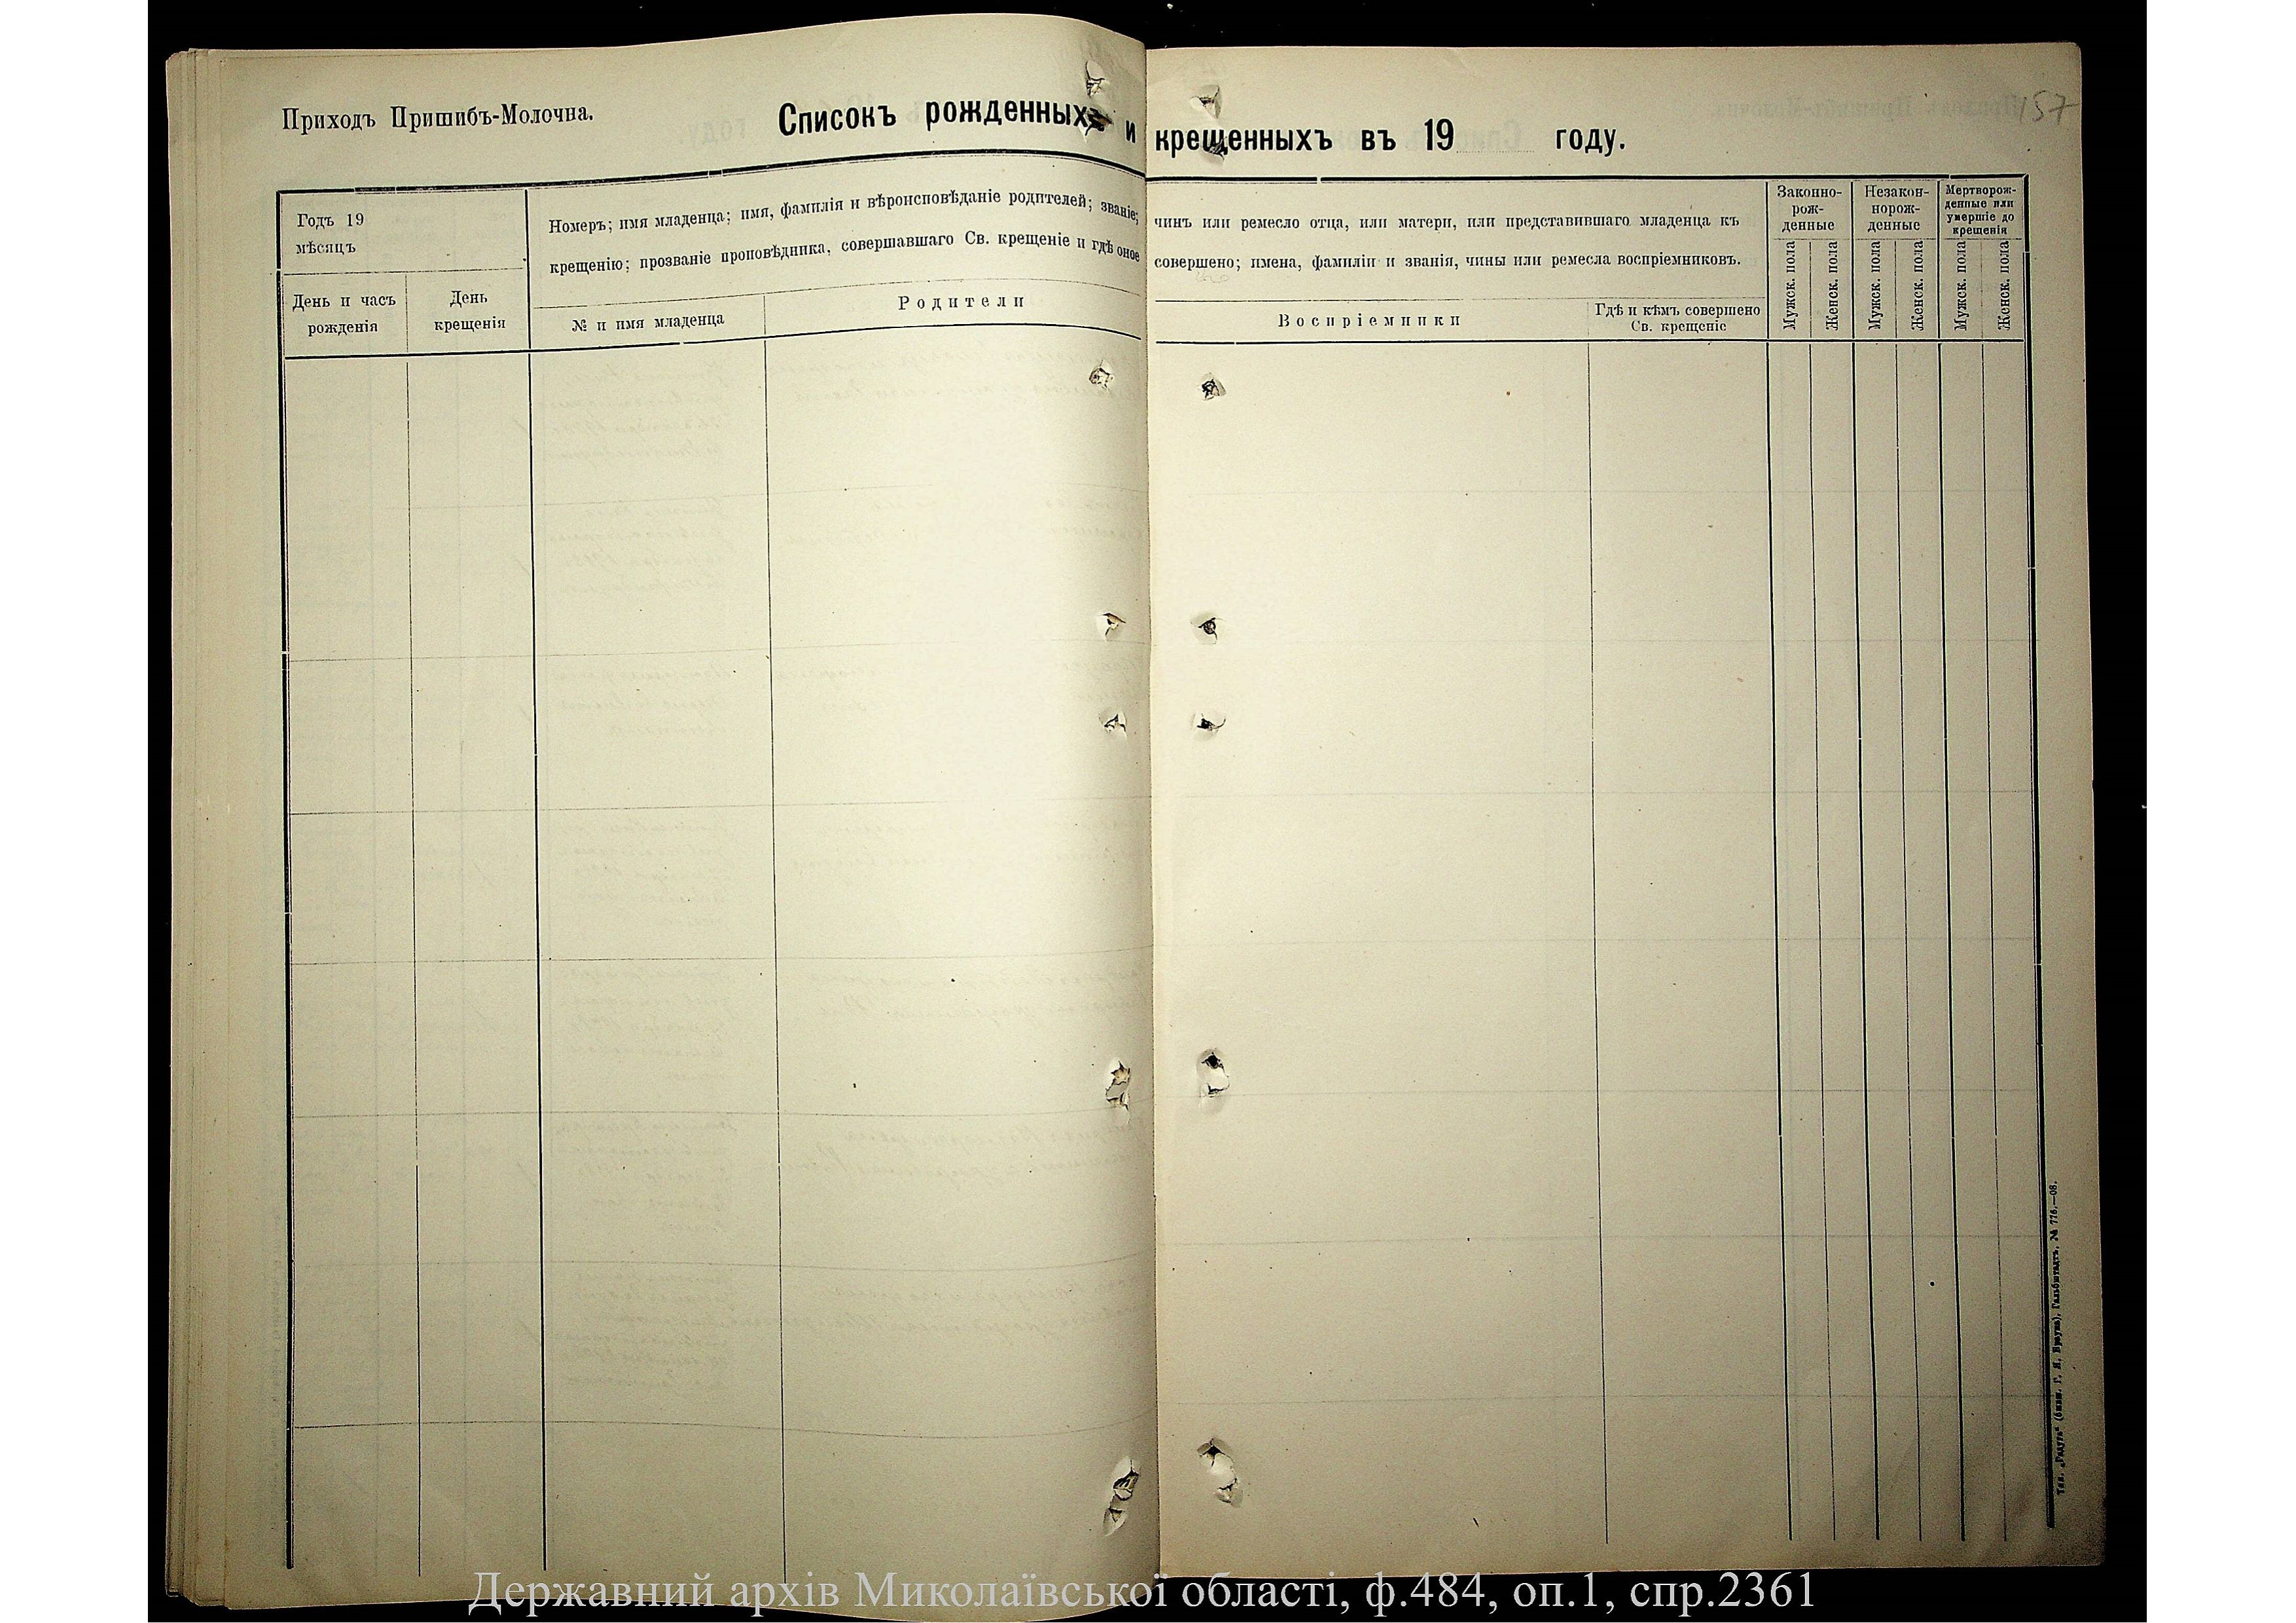 Приходъ Пришибъ-Молочна.
Списокъ рожденныхъ и крещенныхъ въ 19 году.
157
Годъ 19
мѣсяцъ
День и часъ
рожденія
День
крещенія
Номеръ; имя младенца; имя, фамилія и вѣроисповѣданіе родителей; званіе; чинъ или ремесло отца, или матери, или представившаго младенца къ
крещенію; прозваніе проповѣдника, совершавшаго Св. крещеніе и гдѣ оное совершено; имена, фамиліи и званія, чины или ремесла воспріемниковъ.
№ и имя младенца
Родители
Воспріемники
Гдѣ и кѣмъ совершено
Св. крещеніе
Законно-
рож-
денные
Незакон-
норож-
денные
Мертворож-
денные или
умершіе до
крещенія
Мужск. пола
Женск. пола
Мужск. пола
Женск. пола
Мужск. пола
Женск. пола
Тип. „Радуга“ (бывш. Г. Я. Брауна), Гальбштадтъ. № 776.—08.
Державний архів Миколаївської області, ф.484, оп.1, спр.2361